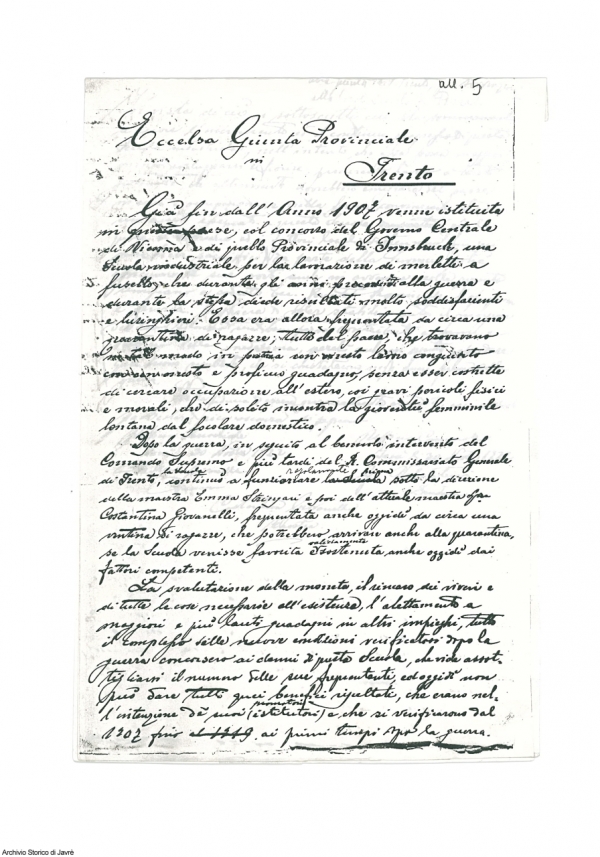 all. 5
Eccelsa Giunta Provinciale
in
Trento
Già fin dall'Anno 1907 venne istituita
in questo paese, col concorso del Governo Centrale
di Vienna e di quello Provinciale di Innsbruck, una
Scuola industriale per la lavorazione di merletti a
fusello, che durante gli anni precedenti alla guerra e
durante la stessa diede risultati molto soddisfacenti
e lusinghieri. Essa era allora frequentata da circa una
quarantina di ragazze, tutte del paese, che trovavano
modo, in patria con onesto lavoro congiunto
con onesto e proficuo guadagno, senza esser costrette
di cercare occupazione all'estero, coi gravi pericoli fisici
e morali, che di solito incontra la gioventù femminile
lontana dal focolare domestico.
Dopo la guerra, in seguito al benevolo intervento del
Comando Supremo e più tardi del R. Commissariato Generale
di Trento, la scuola continuò a funzionare sotto la direzione
della maestra Emma e poi dell'attuale maestra
Costantina Giovanelli, frequentata anche oggidì da circa una
ventina di ragazze, che potrebbero arrivare anche alla quarantina,
se la Scuola venisse favorita e sostenuta anche oggidì dai
fattori competenti.
La svalutazione della moneta, il rincaro dei viveri e
di tutte le cose necessarie all'esistenza, l'alettamento a
maggiori e più lauti guadagni in altri impieghi, tutto
il complesso delle nuove condizioni verificatesi dopo la
guerra concorsero ai danni di questa Scuola, che vide assot-
tigliarsi il numero delle sue frequentanti, ed oggidì non
può dare tutti quei benefici risultati, che erano nel-
l'intenzione dei suoi promotori (istitutori) e che si verificarono dal
1907 fino el 1919. ai primi tempi dopo la guerra.
Archivio Storico di Javrè